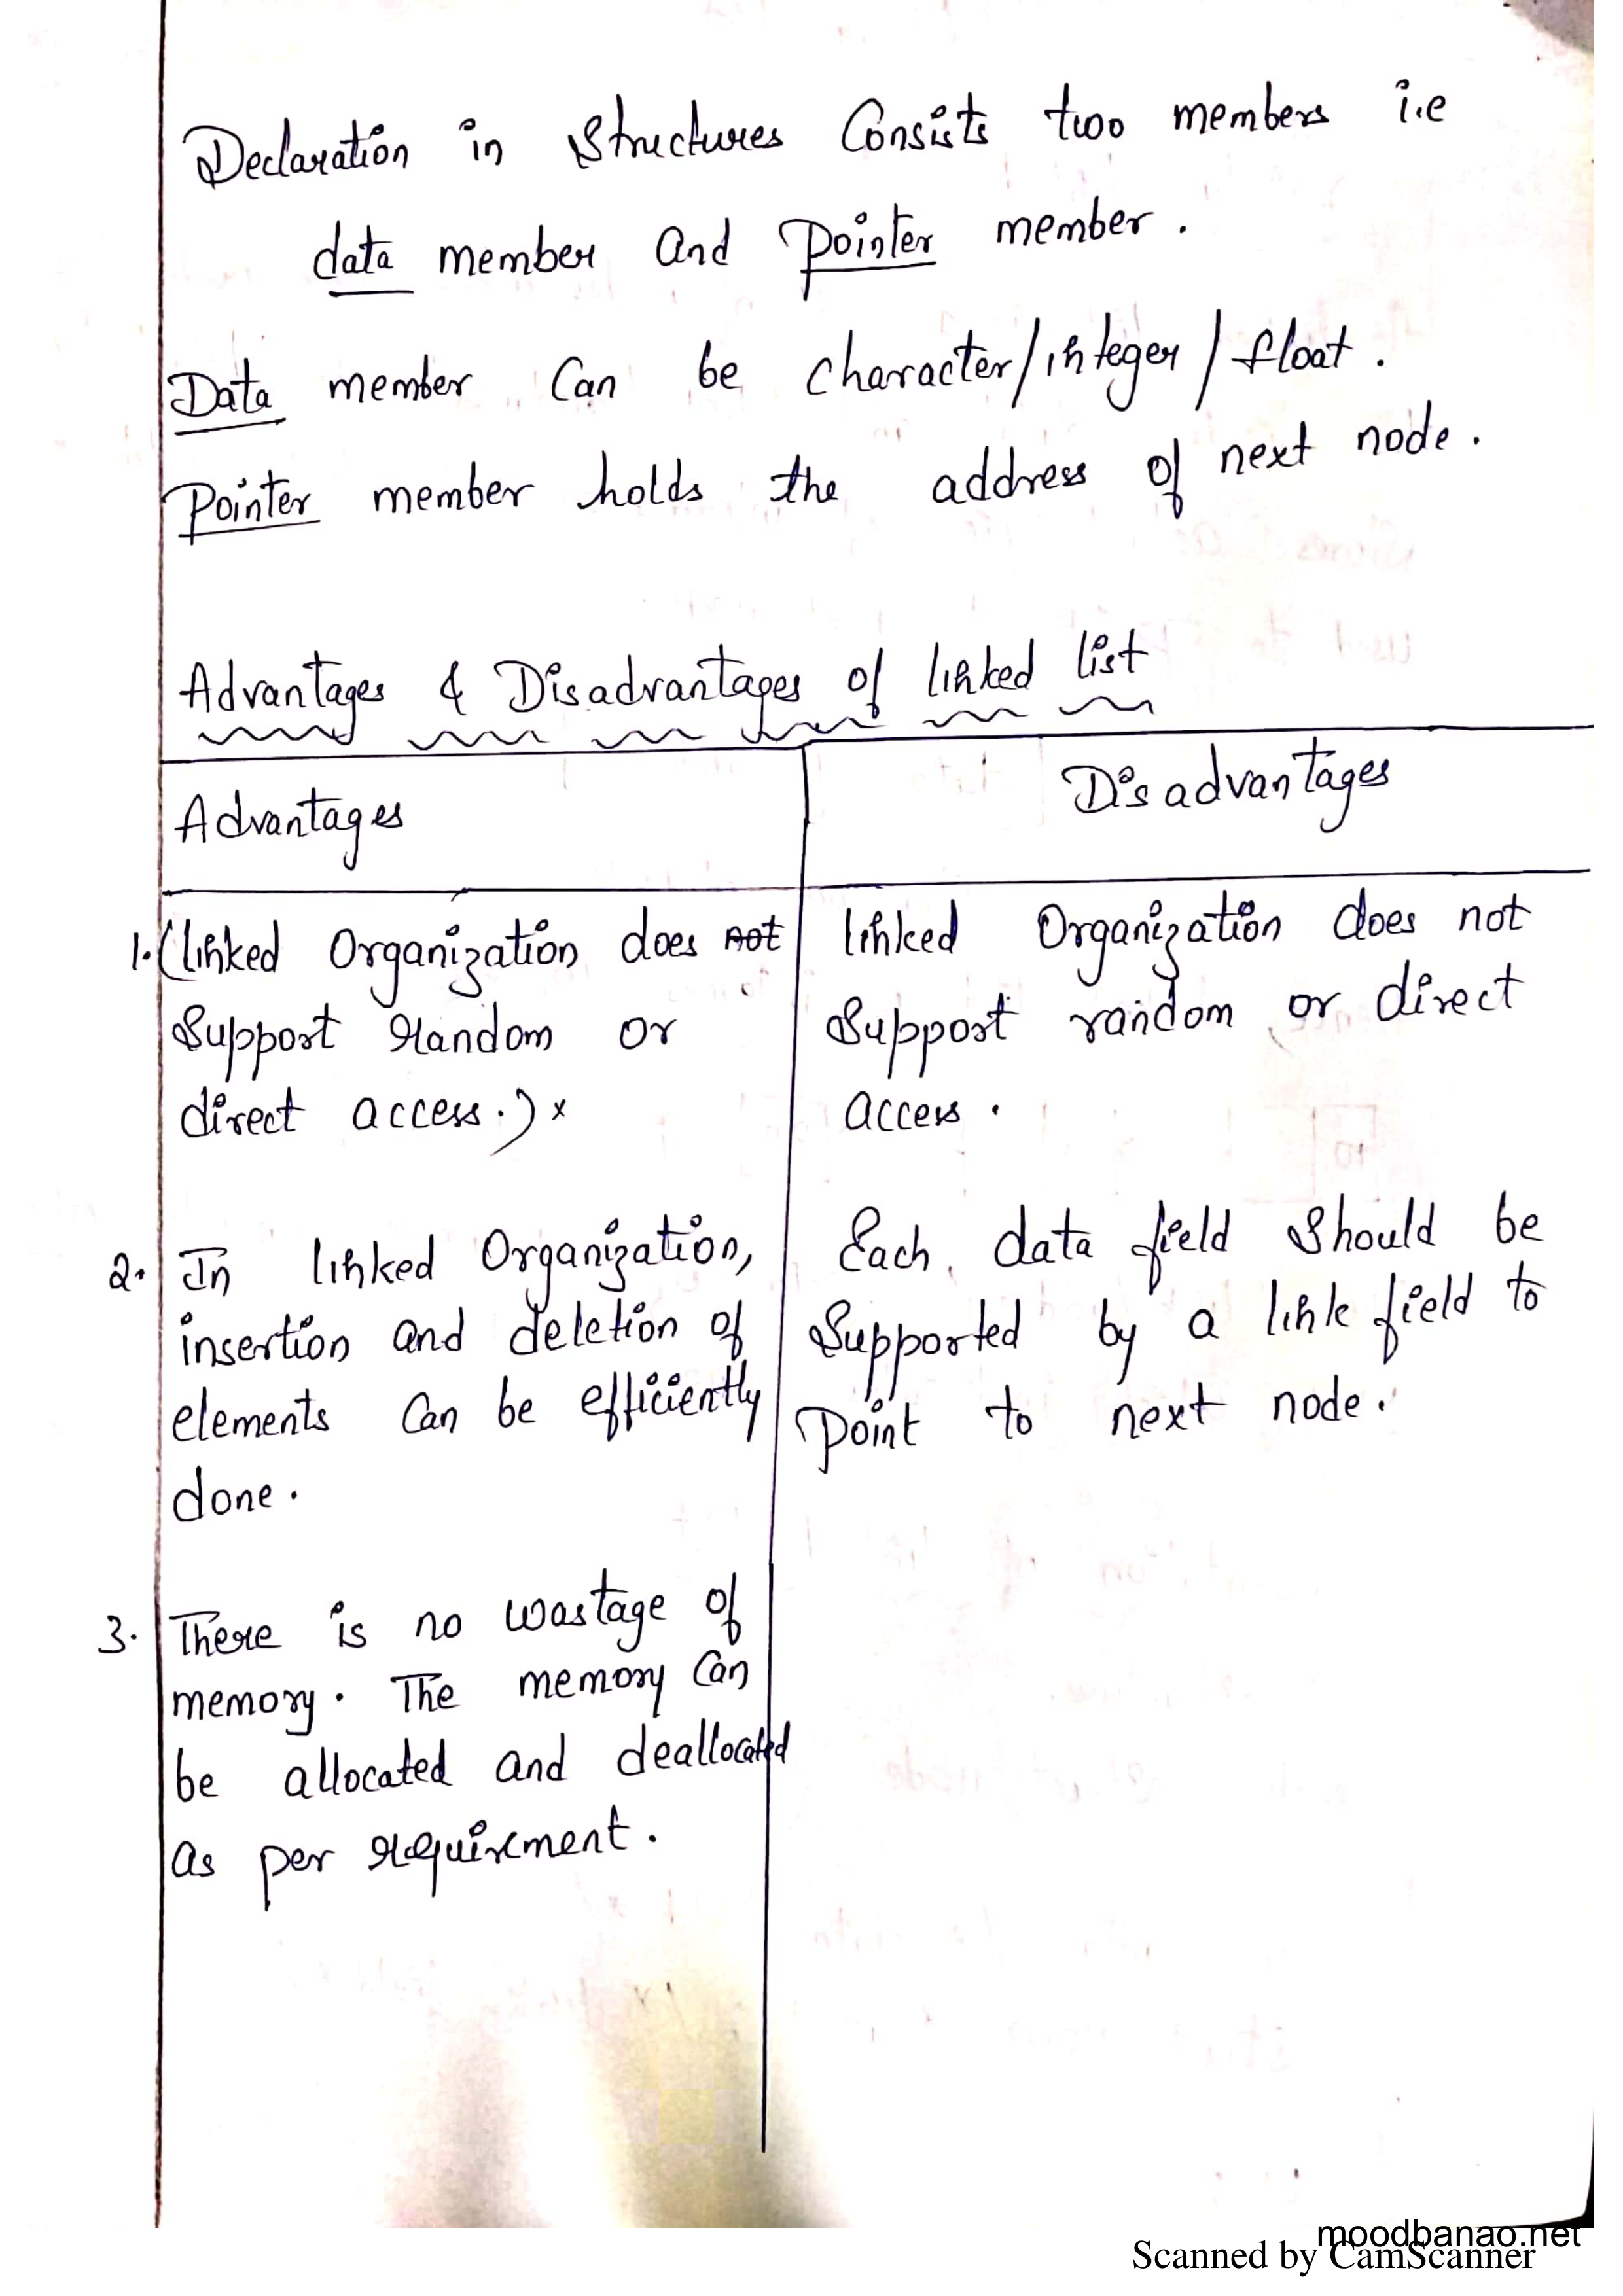 Declaration in Structures Consists two members i.e
data member and Pointer member.
Data member Can be character/integer/float.
Pointer member holds the address of next node.
Advantages & Disadvantages of linked list
Advantages
Disadvantages
1. (linked Organization does not
Support random or
direct access.) x
linked Organization does not
Support random or direct
access.
2. In linked Organization,
insertion and deletion of
elements Can be efficiently
done.
Each data field Should be
Supported by a link field to
Point to next node.
3. There is no wastage of
memory. The memory Can
be allocated and deallocated
as per requirement.
moodbanao.net
Scanned by CamScanner